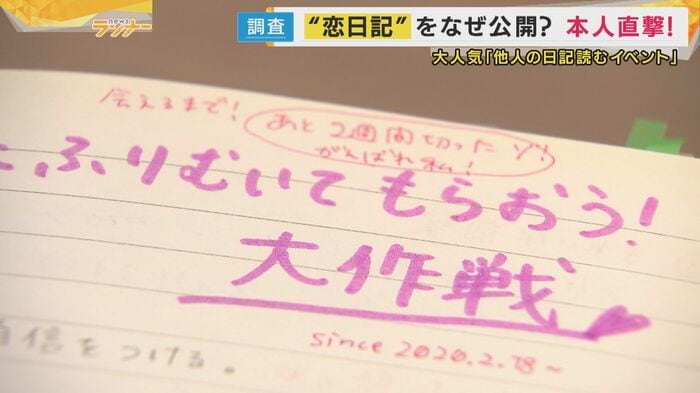 newsランナー
調査 “恋日記”をなぜ公開? 本人直撃!
大人気「他人の日記読むイベント」
会えるまで!
あと2週間切ったゾ!
がんばれ私!
、ふりむいてもらおう!
大作戦
since 2020.2.18~
自信をつける。